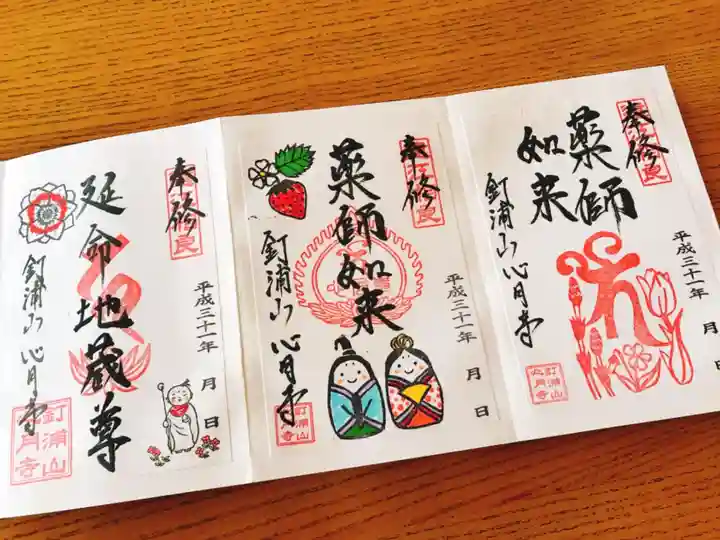 奉修
薬師
如来
平成三十一年　月　日
釘浦山 心月寺
釘浦山
心月寺
奉修
薬師如来
平成三十一年　月　日
釘浦山 心月寺
釘浦山
心月寺
奉修
延命地蔵尊
平成三十一年　月　日
釘浦山 心月寺
釘浦山
心月寺